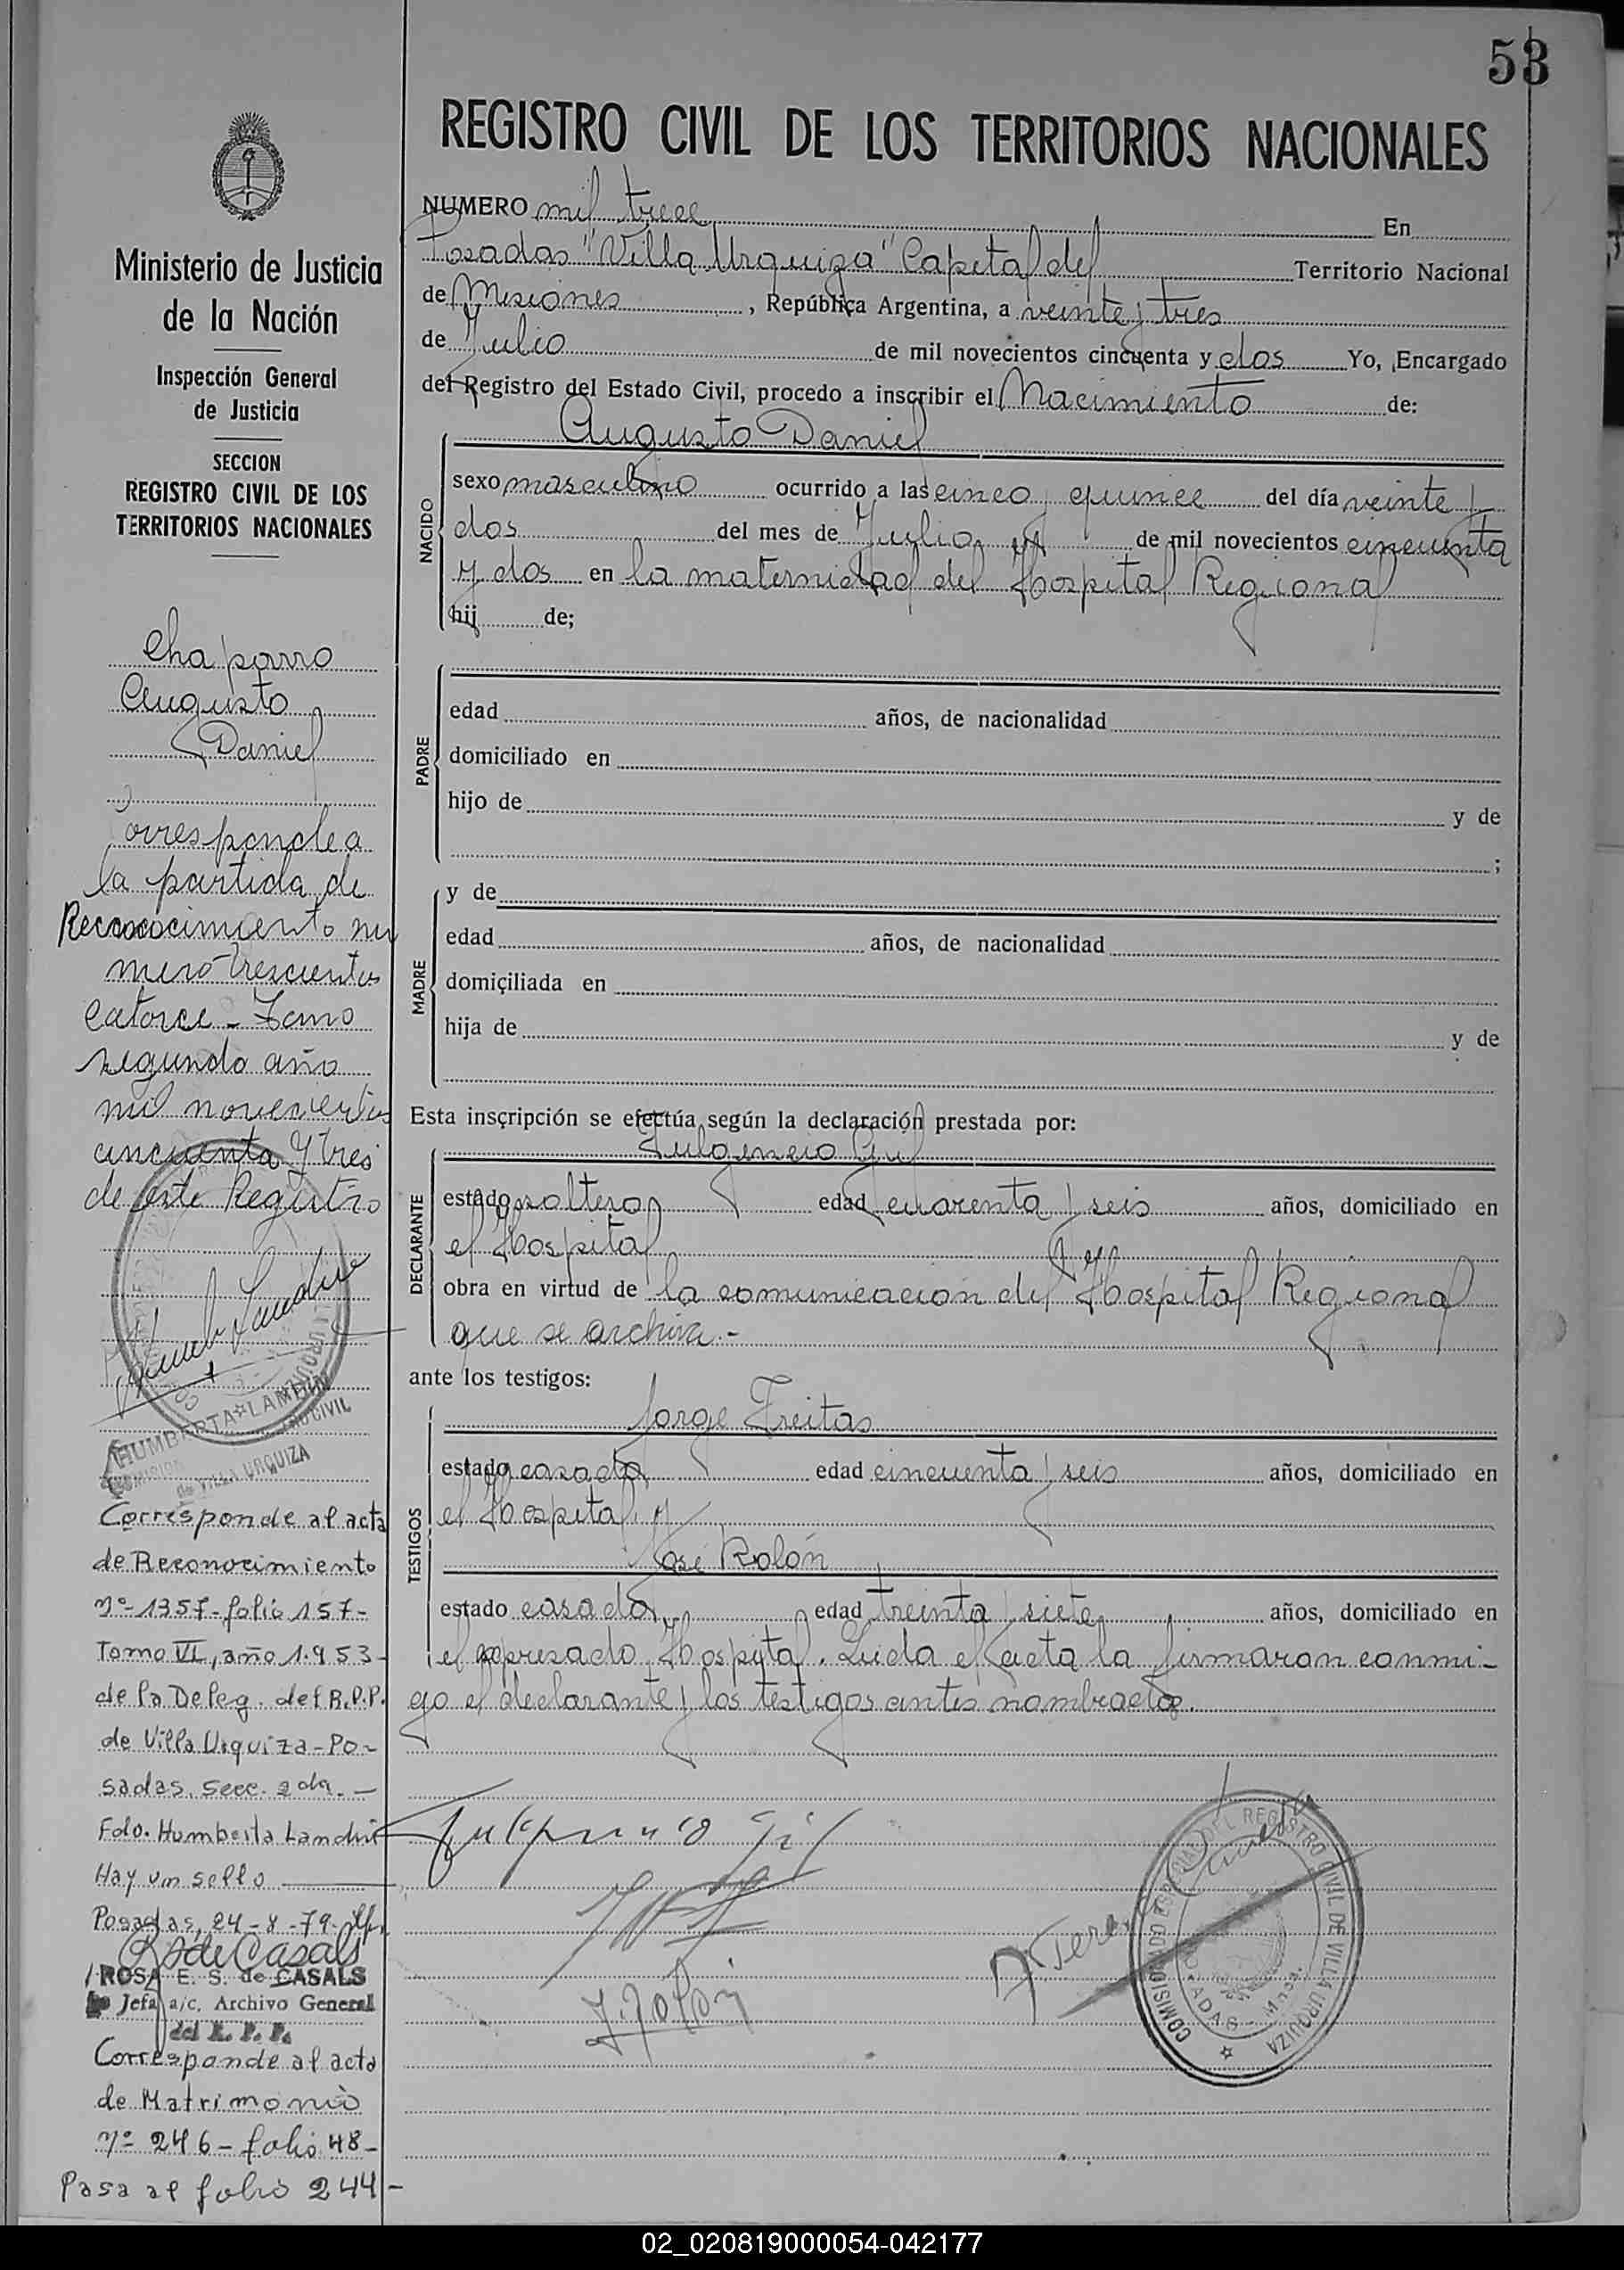 53
REGISTRO CIVIL DE LOS TERRITORIOS NACIONALES
NUMERO mil trece En
Posadas "Villa Urquiza" Capital del Territorio Nacional
de Misiones, República Argentina, a veinte y tres
de Julio de mil novecientos cincuenta y dos Yo, Encargado
del Registro del Estado Civil, procedo a inscribir el Nacimiento de:
NACIDO
Augusto Daniel
sexo masculino ocurrido a las cinco y quince del día veinte y
dos del mes de Julio de mil novecientos cincuenta
y dos en la maternidad del Hospital Regional
hij de;
PADRE
edad años, de nacionalidad
domiciliado en
hijo de y de
;
MADRE
y de
edad años, de nacionalidad
domiciliada en
hija de y de
Esta inscripción se efectúa según la declaración prestada por:
DECLARANTE
Fulgencio Gil
estado soltero edad cuarenta y seis años, domiciliado en
el Hospital
obra en virtud de la comunicación del Hospital Regional
que se archiva.-
ante los testigos:
TESTIGOS
Jorge Freitas
estado casado edad cincuenta y seis años, domiciliado en
el Hospital y
José Rolón
estado casado, edad treinta y siete años, domiciliado en
el expresado Hospital. Leída el acta la firmaron conmi-
go el declarante y los testigos antes nombrados.
Fulgencio Gil
J. Rolón
COMISIONADO ESPECIAL DEL REGISTRO CIVIL DE VILLA URQUIZA
POSADAS - Mnes.
Ministerio de Justicia
de la Nación
Inspección General
de Justicia
SECCION
REGISTRO CIVIL DE LOS
TERRITORIOS NACIONALES
Chaparro
Augusto
Daniel
Corresponde a
la partida de
Reconocimiento nu
mero trescientos
catorce - Tomo
segundo año
mil novecientos
cincuenta y tres
de este Registro
HUMBERTA LANDRIU
de VILLA URQUIZA
Corresponde al acta
de Reconocimiento
nº-1357-folio 157-
Tomo VI, año 1.953-
de la Deleg. del R.P.P.
de Villa Urquiza-Po-
sadas. Secc. 2da.-
Fdo. Humberta Landriu
Hay un sello
Posadas, 24-X-79-
R S de Casals
ROSA E. S. de CASALS
Jefa a/c. Archivo General
del R. P. P.
Corresponde al acta
de Matrimonio
nº 246-folio 48-
Pasa al folio 244-
02_020819000054-042177